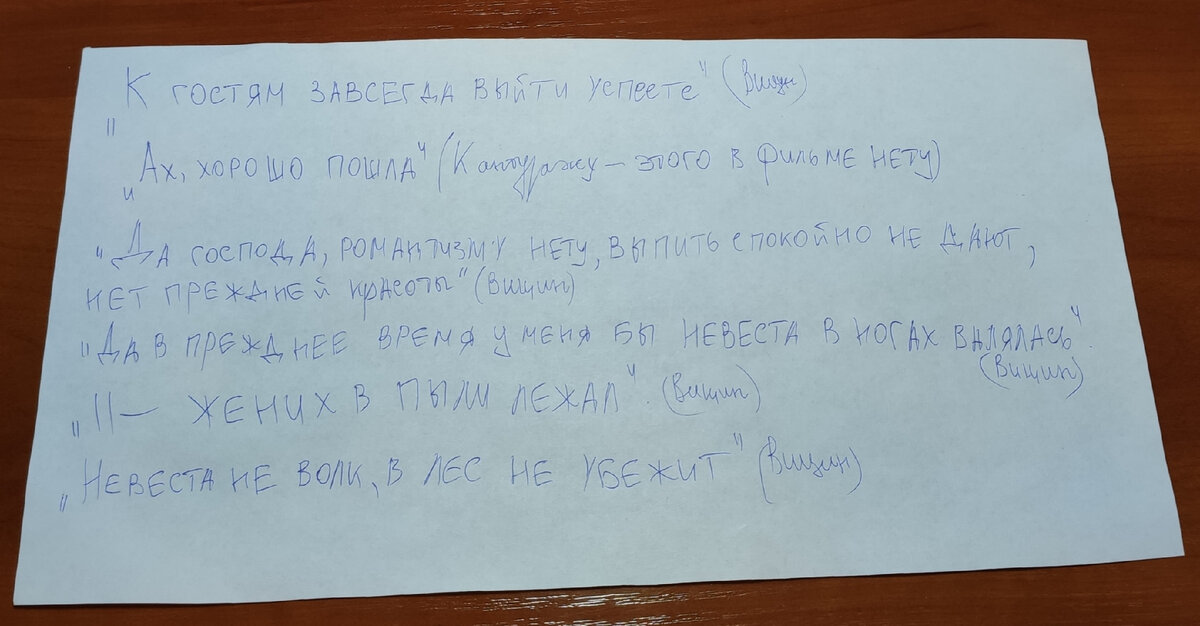 "К гостям завсегда выйти успеете" (Вицин)
"Ах, хорошо пошла" (Кантуражу — этого в фильме нету)
"Да господа, романтизму нету, выпить спокойно не дают,
нет прежней красоты" (Вицин)
"Да в прежднее время у меня бы невеста в ногах валялась".
(Вицин)
"||— жених в пыли лежал". (Вицин)
"Невеста не волк, в лес не убежит" (Вицин)